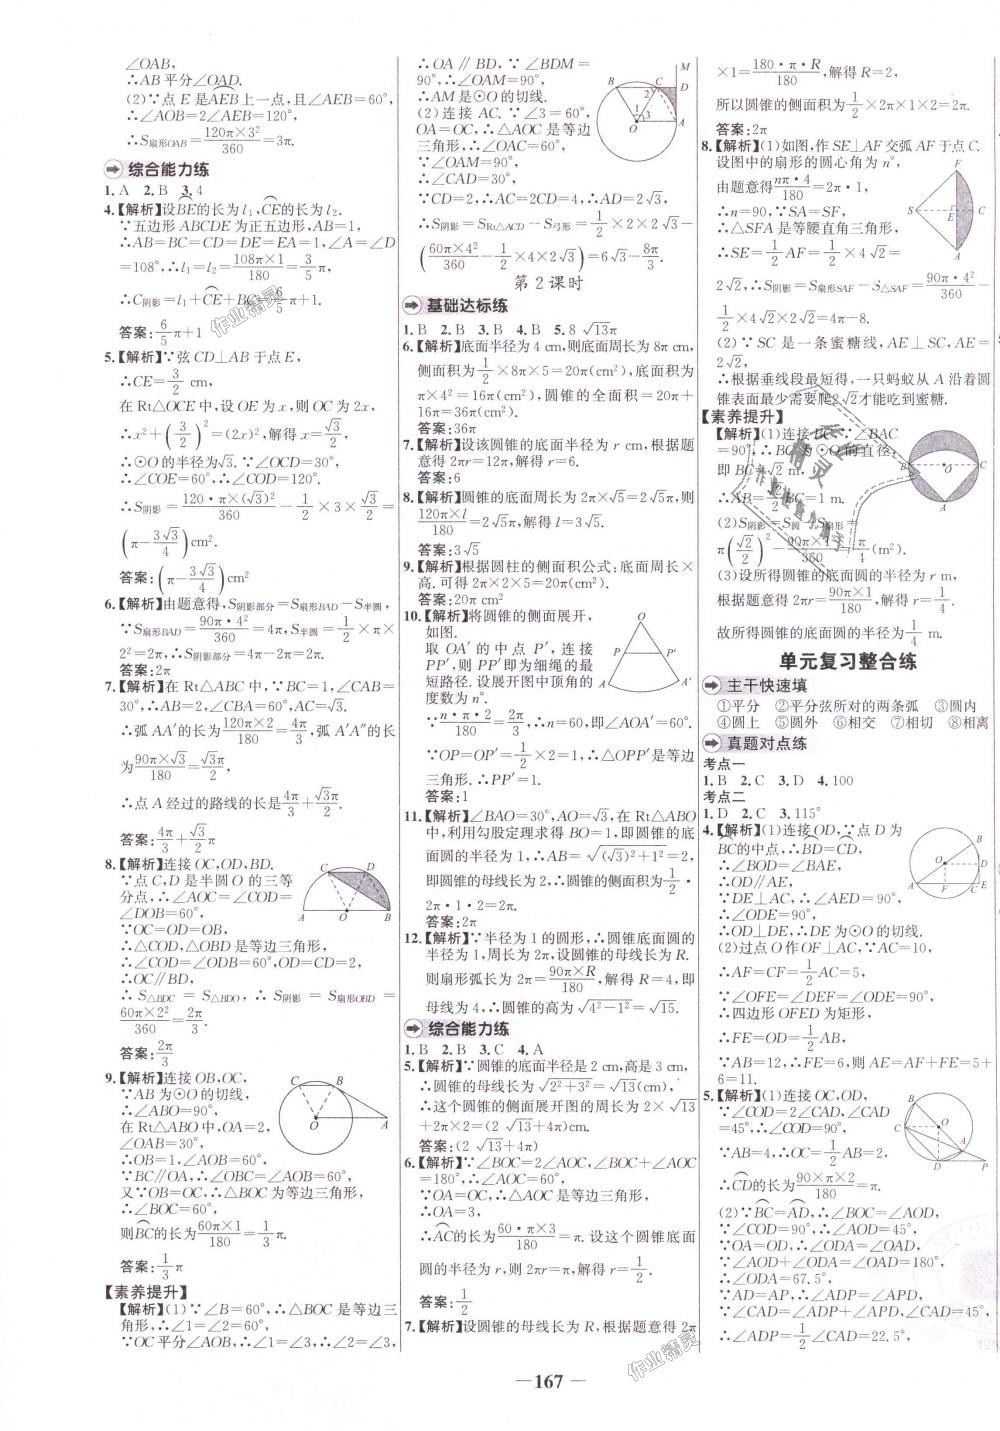 ∠OAB,
∴AB平分∠OAD.
(2)∵点E是AEB上一点,且∠AEB=60°,
∴∠AOB=2∠AEB=120°,
∴S扇形OAB=120π×3²/360=3π.
综合能力练
1. A 2. B 3. 4
4.【解析】设BE的长为l₁,CE的长为l₂.
∵五边形ABCDE为正五边形,AB=1,
∴AB=BC=CD=DE=EA=1,∠A=∠D
=108°,∴l₁=l₂=108π×1/180=3/5π,
∴C阴影=l₁+CE+BC=6/5π+1.
答案:6/5π+1
5.【解析】∵弦CD⊥AB于点E,
∴CE=3/2 cm,
在Rt△OCE中,设OE为x,则OC为2x,
∴x²+(3/2)²=(2x)²,解得x=√3/2.
∴⊙O的半径为√3.∵∠OCD=30°,
∴∠COE=60°,∴∠COD=120°.
∴S阴影=120·π×(√3)²/360-1/2×3×√3/2=
(π-3√3/4)cm².
答案:(π-3√3/4)cm²
6.【解析】由题意得,S阴影部分=S扇形BAD-S半圆,
∵S扇形BAD=90π·4²/360=4π,S半圆=1/2×π×
2²=2π,∴S阴影部分=4π-2π=2π.
答案:2π
7.【解析】在Rt△ABC中,∵BC=1,∠CAB=
30°,∴AB=2,∠CBA=60°,AC=√3,
∴弧AA′的长为120π×2/180=4π/3,弧A′A″的长
为90π×√3/180=√3π/2,
∴点A经过的路线的长是4π/3+√3/2π.
答案:4π/3+√3π/2
8.【解析】连接OC,OD,BD.
∵点C,D是半圆O的三等
分点,∴∠AOC=∠COD=
∠DOB=60°,
∵OC=OD=OB,
∴△COD,△OBD是等边三角形,
∴∠COD=∠ODB=60°,OD=CD=2,
∴OC∥BD,
∴S△BDC=S△BDO,∴S阴影=S扇形OBD=
60π×2²/360=2π/3.
答案:2π/3
9.【解析】连接OB,OC,
∵AB为⊙O的切线,
∴∠ABO=90°,
在Rt△ABO中,OA=2,
∠OAB=30°,
∴OB=1,∠AOB=60°,
∵BC∥OA,∴∠OBC=∠AOB=60°,
又∵OB=OC,∴△BOC为等边三角形,
∴∠BOC=60°,
则BC的长为60π×1/180=1/3π.
答案:1/3π
【素养提升】
【解析】(1)∵∠B=60°,∴△BOC是等边三
角形,∴∠1=∠2=60°,
∵OC平分∠AOB,∴∠1=∠3,∴∠2=∠3,
∴OA∥BD,∵∠BDM=
90°,∴∠OAM=90°,
∴AM是⊙O的切线.
(2)连接AC.∵∠3=60°,
OA=OC,∴△AOC是等边
三角形,∴∠OAC=60°,
∴∠CAD=30°,
∵CD=2,∴AC=2CD=4,∴AD=2√3,
∴S阴影=SRt△ACD-S弓形=1/2×2×2√3-
(60π×4²/360-1/2×4×2√3)=6√3-8π/3.
第2课时
基础达标练
1. B 2. B 3. B 4. B 5. 8 √13π
6.【解析】底面半径为4 cm,则底面周长为8π cm,
侧面面积为1/2×8π×5=20π(cm²),底面面积=
π×4²=16π(cm²),圆锥的全面积=20π+
16π=36π(cm²).
答案:36π
7.【解析】设该圆锥的底面半径为r cm,根据题
意得2πr=12π,解得r=6.
答案:6
8.【解析】圆锥的底面周长为2π×√5=2√5π,则
120π×l/180=2√5π,解得l=3√5.
答案:3√5
9.【解析】根据圆柱的侧面积公式,底面周长×
高.可得2π×2×5=20π(cm²).
答案:20π cm²
10.【解析】将圆锥的侧面展开,
如图.
取OA′的中点P′,连接
PP′,则PP′即为细绳的最
短路径.设展开图中顶角的
度数为n°.
∵n·π·2/180=2π/3,∴n=60,即∠AOA′=60°.
∵OP=OP′=1/2×2=1,∴△OPP′是等边
三角形.∴PP′=1.
答案:1
11.【解析】∠BAO=30°,AO=√3,在Rt△ABO
中,利用勾股定理求得BO=1,即圆锥的底
面圆的半径为1,AB=√((√3)²+1²)=2,
即圆锥的母线长为2,∴圆锥的侧面积为1/2·
2π·1·2=2π.
答案:2π
12.【解析】∵半径为1的圆形,∴圆锥底面圆的
半径为1,周长为2π,设圆锥的母线长为R.
则扇形弧长为2π=90π×R/180,解得R=4,即
母线为4,∴圆锥的高为√(4²-1²)=√15.
综合能力练
1. B 2. B 3. C 4. A
5.【解析】∵圆锥的底面半径是2 cm,高是3 cm,
∴圆锥的母线长为√(2²+3²)=√13(cm),
∴这个圆锥的侧面展开图的周长为2×√13
+2π×2=(2√13+4π)(cm).
答案:(2√13+4π)
6.【解析】∵∠BOC=2∠AOC,∠BOC+∠AOC
=180°,∴∠AOC=60°,
∵OA=OC,∴△AOC是等边三角形,
∴OA=3,
∴AC的长为60·π×3/180=π.设这个圆锥底面
圆的半径为r,则2πr=π,解得r=1/2.
答案:1/2
7.【解析】设圆锥的母线长为R,根据题意得2π
×1=180·π·R/180,解得R=2,
所以圆锥的侧面积为1/2×2π×1×2=2π.
答案:2π
8.【解析】(1)如图,作SE⊥AF交弧AF于点C.
设图中的扇形的圆心角为n°,
由题意得nπ·4/180=2π·1,
∴n=90,∵SA=SF,
∴△SFA是等腰直角三角形,
∴SE=1/2AF=1/2×4√2=
2√2,∴S阴影=S扇形SAF-S△SAF=90π·4²/360-
1/2×4√2×2√2=4π-8.
(2)∵SC是一条蜜糖线,AE⊥SC,AE=
2√2,
∴根据垂线段最短得,一只蚂蚁从A沿着圆
锥表面最少需要爬2√2才能吃到蜜糖.
【素养提升】
【解析】(1)连接BC.∵∠BAC
=90°,∴BC为⊙O的直径,
即BC=√2 m,
∴AB=√2/2BC=1 m.
(2)S阴影=S圆-S扇形=
π(√2/2)²-90π×1/360=π/4(m²).
(3)设所得圆锥的底面圆的半径为r m,
根据题意得2πr=90π×1/180,解得r=1/4,
故所得圆锥的底面圆的半径为1/4 m.
单元复习整合练
主干快速填
①平分 ②平分弦所对的两条弧 ③圆内
④圆上 ⑤圆外 ⑥相交 ⑦相切 ⑧相离
真题对点练
考点一
1. B 2. C 3. D 4. 100
考点二
1. D 2. C 3. 115°
4.【解析】(1)连接OD,∵点D为
BC的中点,∴BD=CD,
∴∠BOD=∠BAE,
∴OD∥AE,
∵DE⊥AC,∴∠AED=90°,
∴∠ODE=90°,
∴OD⊥DE,∴DE为⊙O的切线.
(2)过点O作OF⊥AC,∵AC=10,
∴AF=CF=1/2AC=5,
∵∠OFE=∠DEF=∠ODE=90°,
∴四边形OFED为矩形,
∴FE=OD=1/2AB,
∵AB=12,∴FE=6,则AE=AF+FE=5+
6=11.
5.【解析】(1)连接OC,OD,
∵∠COD=2∠CAD,∠CAD
=45°,∴∠COD=90°,
∵AB=4,∴OC=1/2AB=2,
∴CD的长为90×π×2/180=π.
(2)∵BC=AD,∴∠BOC=∠AOD,
∵∠COD=90°,∴∠AOD=45°,
∵OA=OD,∴∠ODA=∠OAD,
∵∠AOD+∠ODA+∠OAD=180°,
∴∠ODA=67.5°,
∵AD=AP,∴∠ADP=∠APD,
∵∠CAD=∠ADP+∠APD,∠CAD=45°,
∴∠ADP=1/2∠CAD=22.5°,
— 167 —